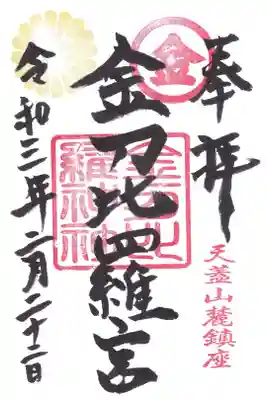 奉拝
天蓋山麓鎮座
金
金刀比羅宮
金刀比
羅神社
令和三年二月二十二日